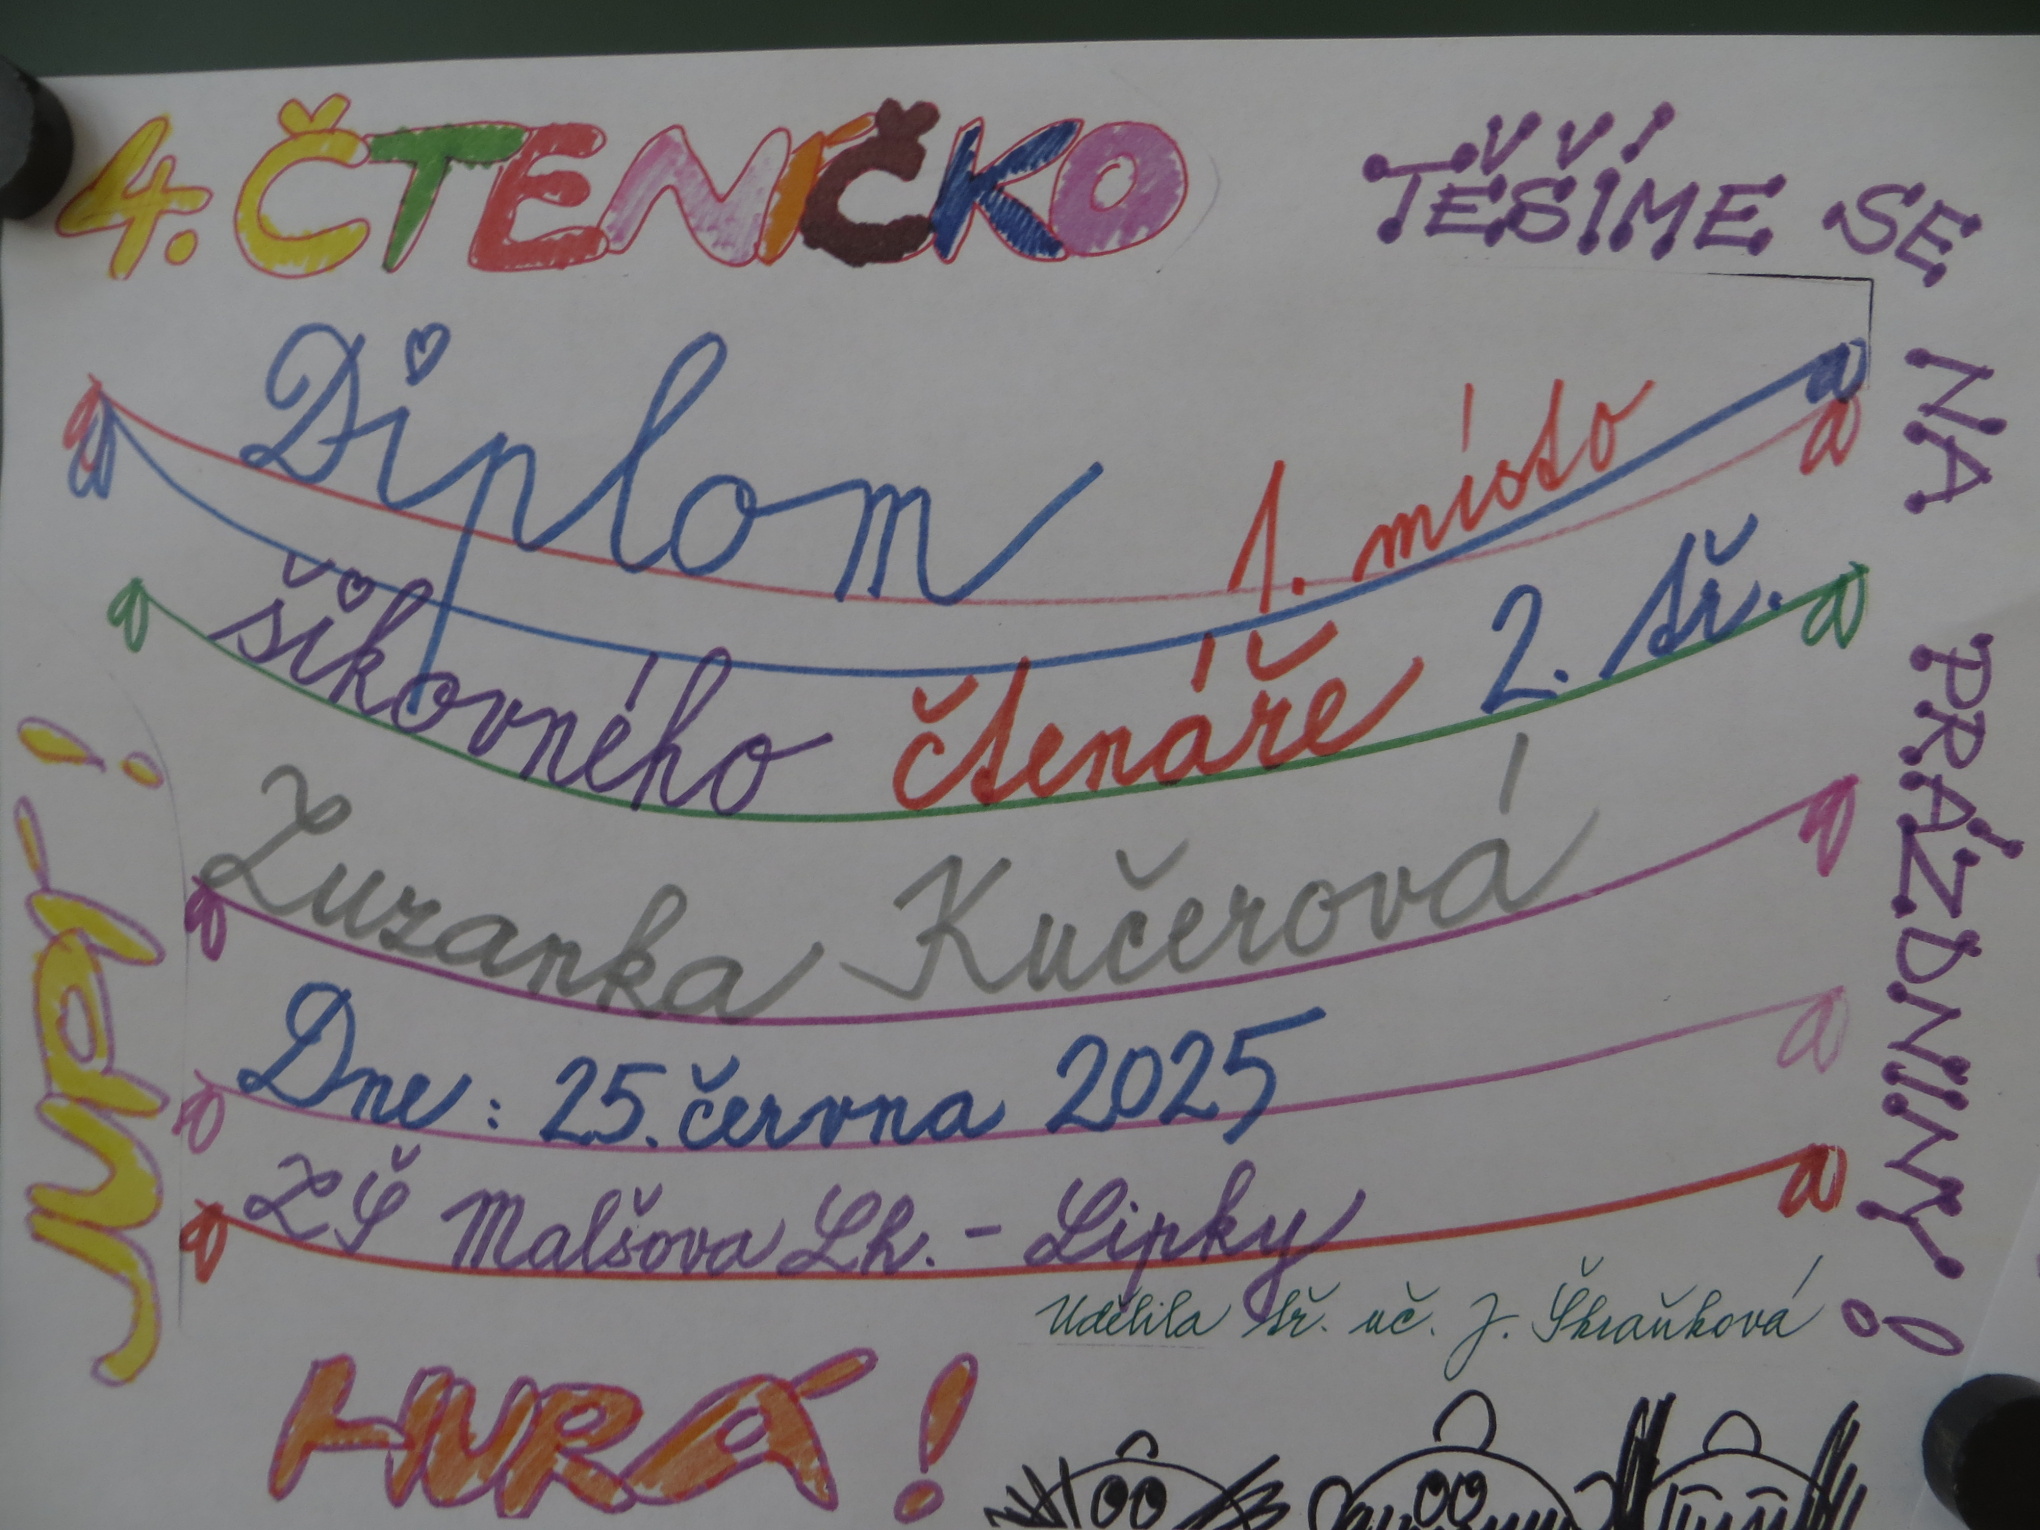 4. ČTENÍČKO
TĚŠÍME SE NA PRÁZDNINY!
Diplom 1. místo
šikovného čtenáře 2. tř.
Zuzanka Kučerová
Dne: 25. června 2025
ZŠ Malšova Lh. - Lipky
Udělila tř. uč. J. Škraňková
HURÁ!
HURÁ!